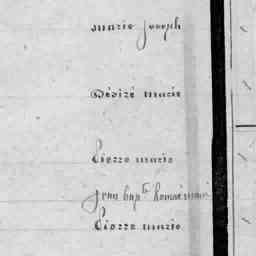 marie Joseph
Désiré marie
Pierre marie
Jean bapte
Pierre marie